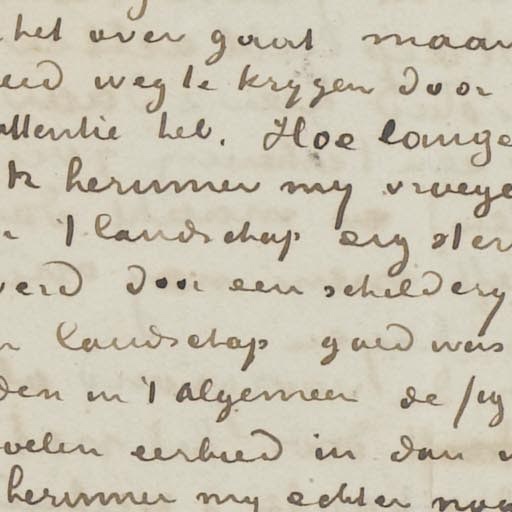 het over gaat maar
weg te krygen door
attentie heb. Hoe lange
k herinner my vroege
't landschap erg ster
werd door een schildery
landschap goed was
den in 't algemeen de fig
velen eerbied in dan
herinner my echter nog